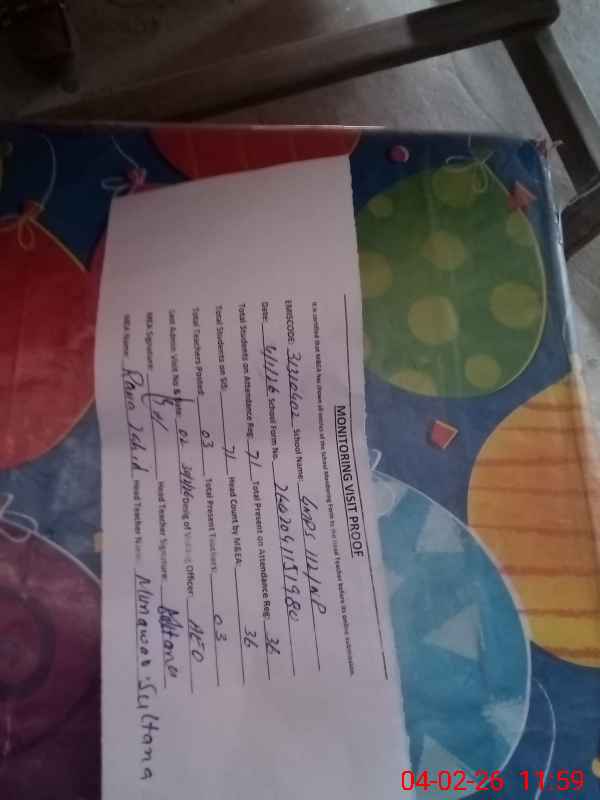 MONITORING VISIT PROOF
It is certified that M&EA has shown all entries of the School Monitoring Form to the Head Teacher before its online submission.
EMISCODE: 31320402 School Name: GMPS 112/NP
Date: School Form No. 2602041151980
Total Students on Attendance Reg: 71 Total Present on Attendance Reg: 36
Total Students on SIS: 71 Head Count by M&EA: 36
Total Teachers Posted: 03 Total Present Teachers: 03
Last Admin Visit No & Date: 02 Desig of Visiting Officer: AEO
MEA Signature: Head Teacher Signature:
MEA Name: Rana Zahid Head Teacher Name: Munawar Sultana
04-02-26 11:59